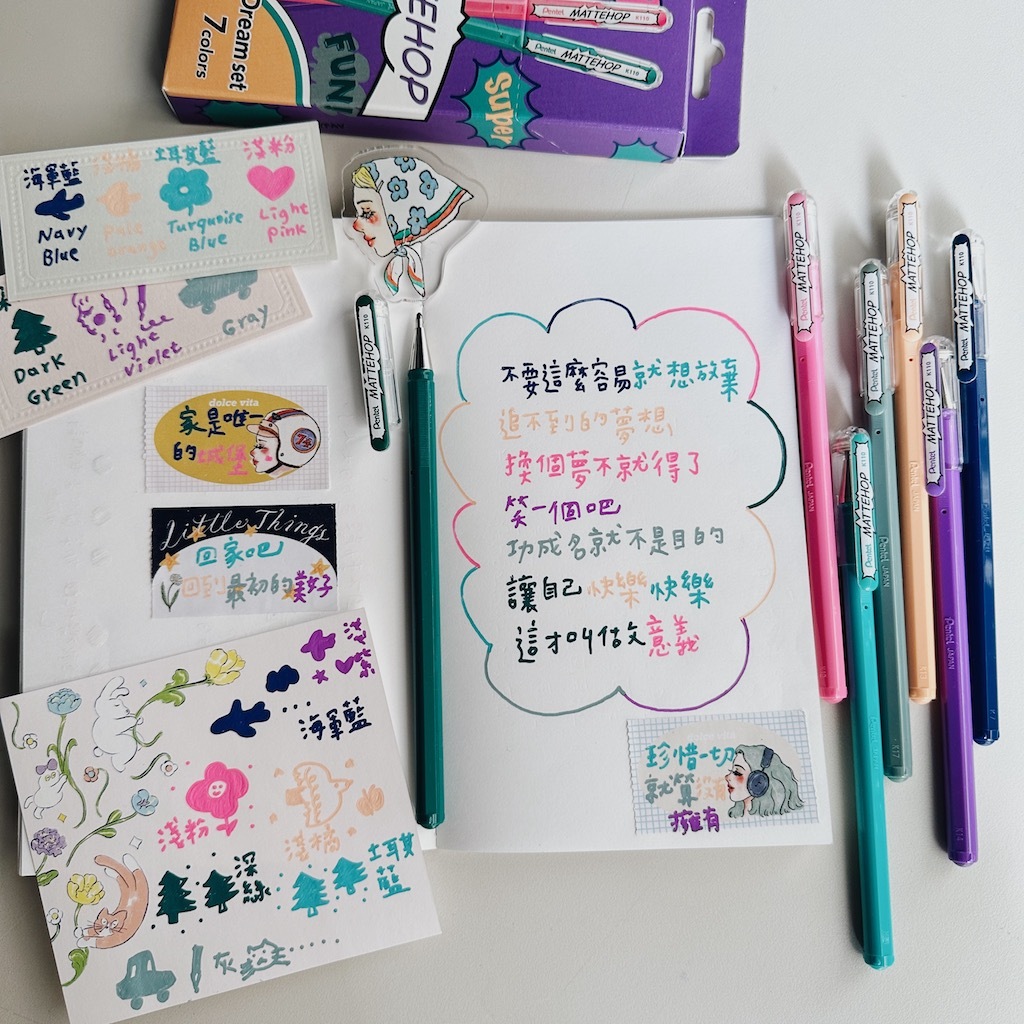 Dream set
7 colors
FUN!
TEHOP
Super
Pentel MATTEHOP K110
Pentel MATTEHOP K110
海軍藍
Navy
Blue
淺橘
pale
orange
土耳其藍
Turquoise
Blue
淺粉
Light
pink
Dark
Green
Light
Violet
Gray
dolce vita
家是唯一
的城堡
Little Things
回家吧
回到最初的美好
Pentel MATTEHOP K110
不要這麼容易就想放棄
追不到的夢想
換個夢不就得了
笑一個吧
功成名就不是目的
讓自己快樂快樂
這才叫做意義
dolce vita
珍惜一切
就算沒有
擁有
淺紫
海軍藍
淺粉
淺橘
深綠
土耳其藍
灰
Pentel MATTEHOP K110
Pentel MATTEHOP K110
Pentel MATTEHOP K110
Pentel MATTEHOP K110
Pentel MATTEHOP K110
Pentel MATTEHOP K110
Pentel JAPAN
Pentel JAPAN
Pentel JAPAN